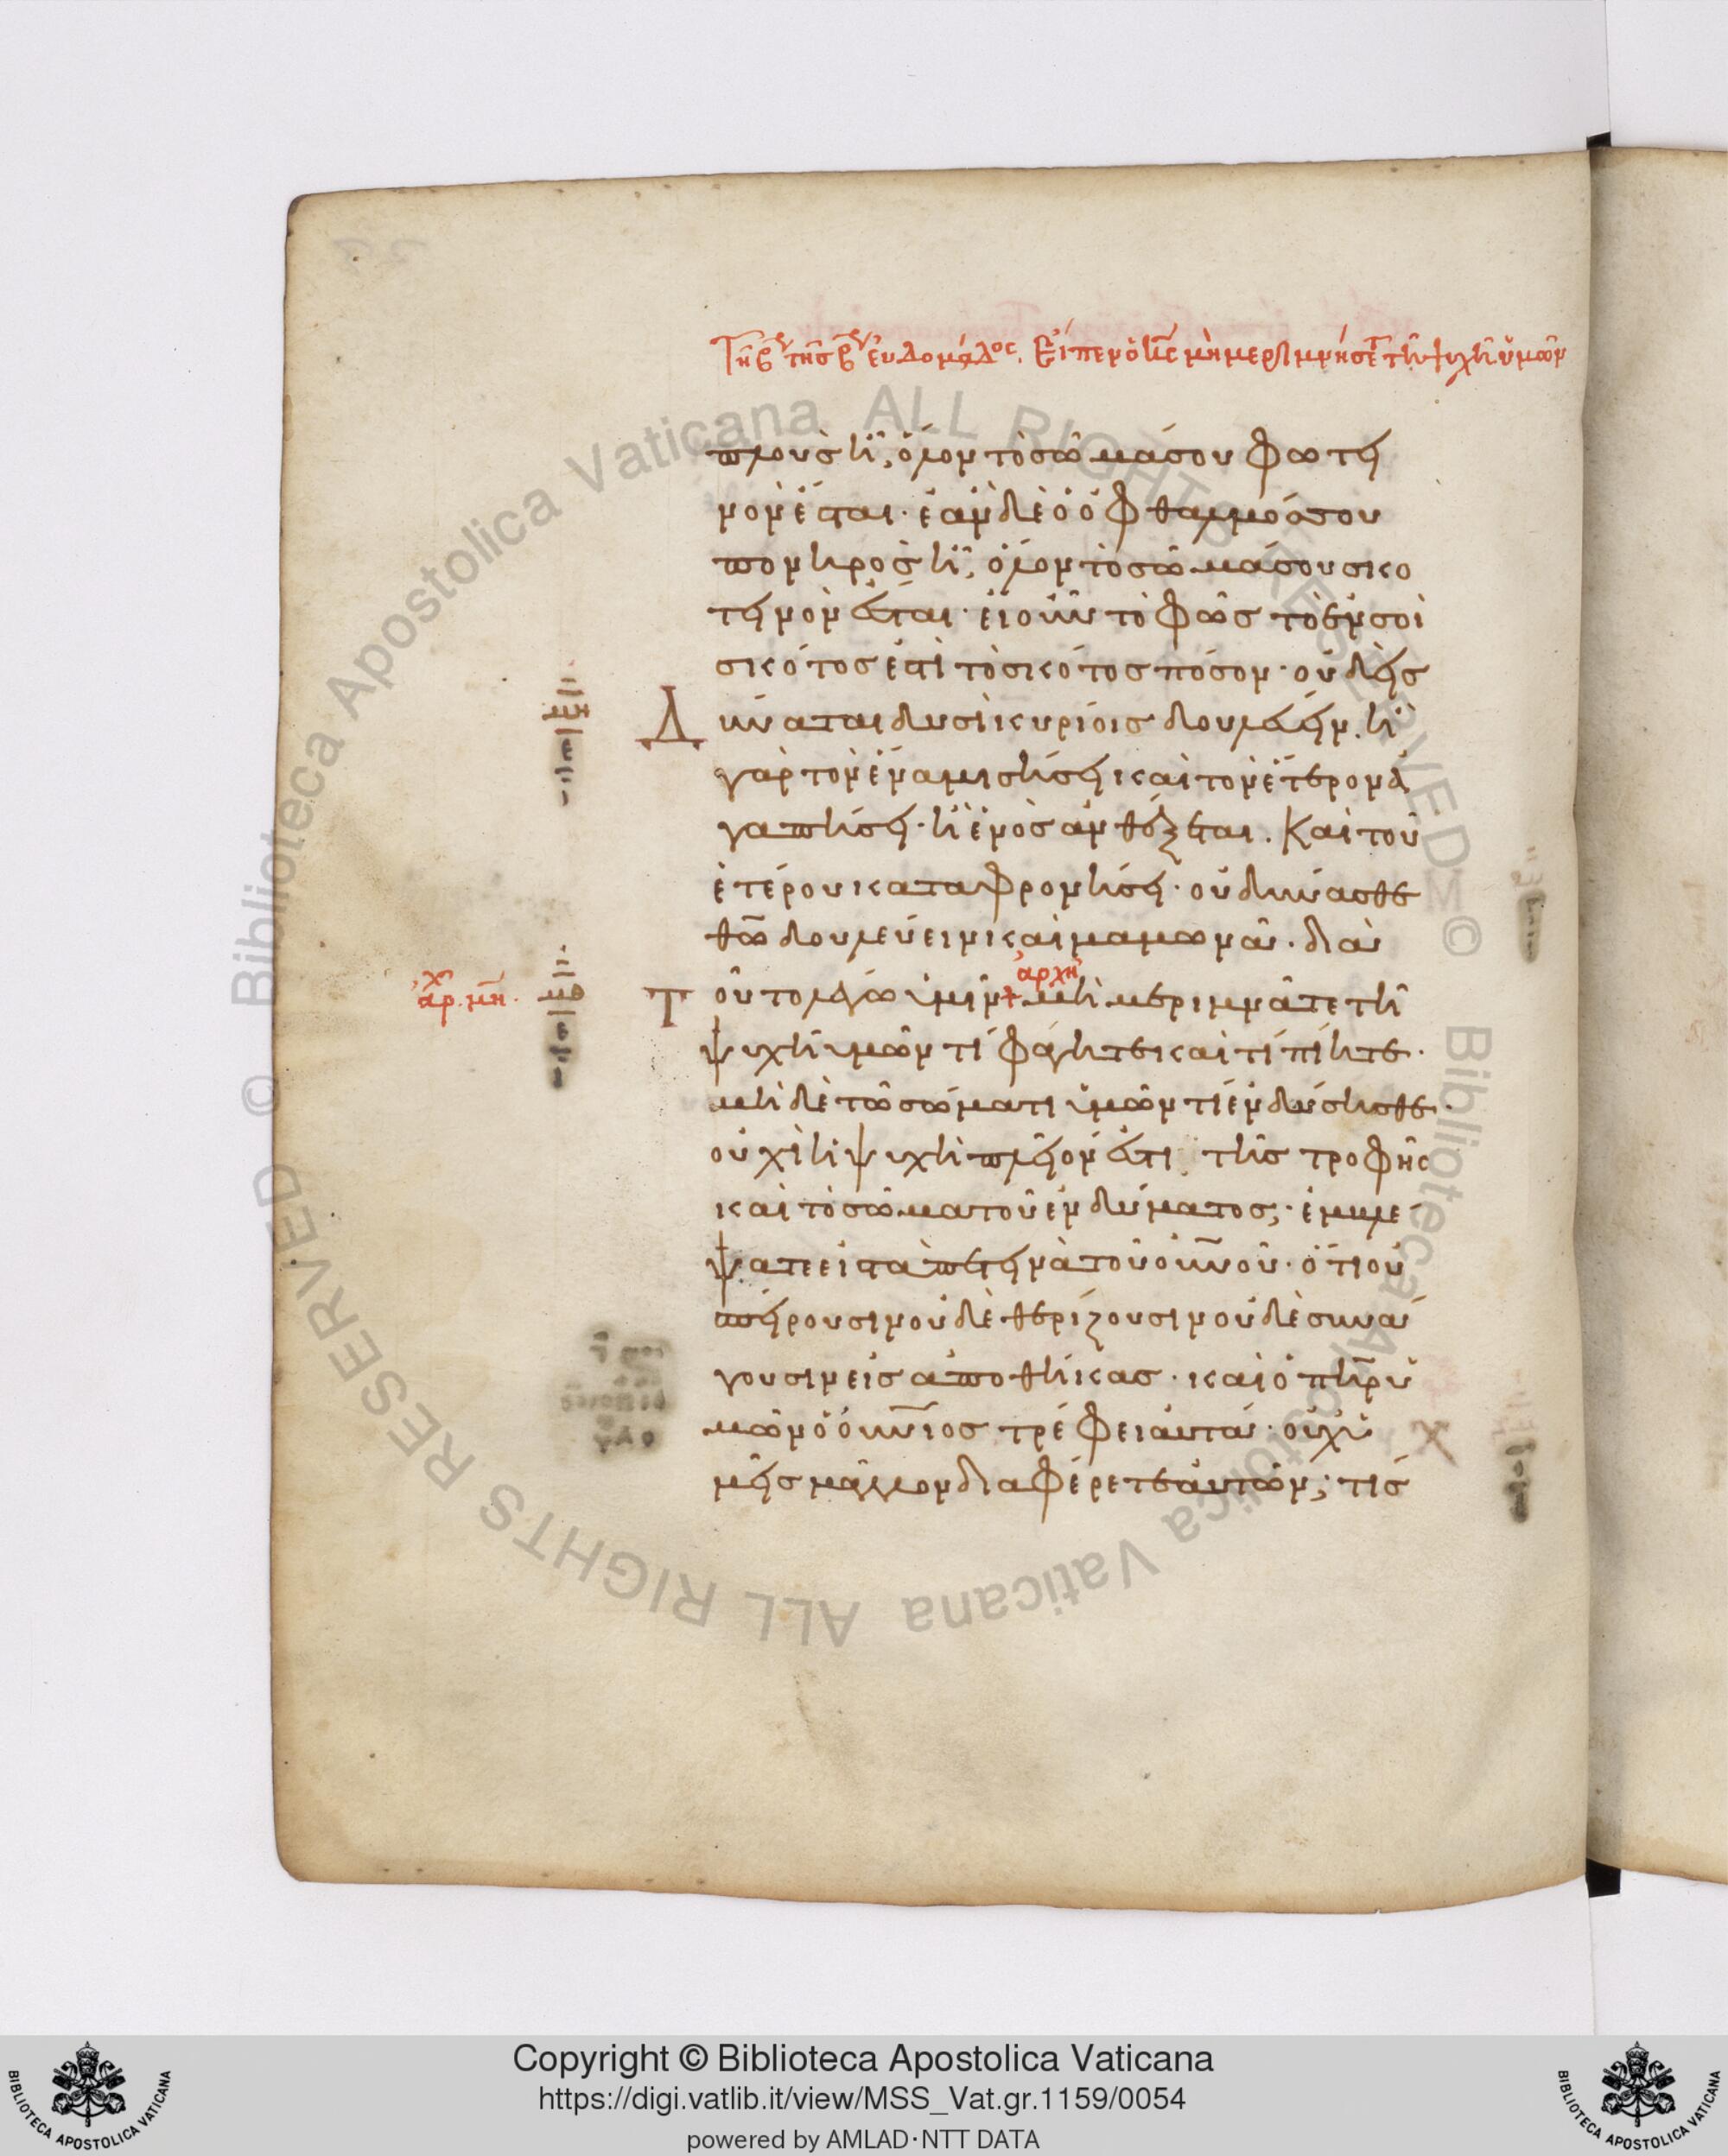 Τῆ β τῆς β ἑυδομάδος. Εἶπεν ὁ κς μὴ μεριμνήσετ τῆ ψυχῆ ὑμῶν
πλουσ ἦ, ὅλον τὸ σῶμά σου φωτει
νὸν ἔσται· ἐὰν δὲ ὁ ὀφθαλμόσ σου
πονηρὸσ ἦ, ὅλον τὸ σῶμά σου σκο
τεινὸν ἔσται· εἰ οὖν τὸ φῶσ τὸ ἐν σοὶ
σκότοσ ἐστὶ τὸ σκότοσ πόσον· οὐδεὶσ
Δ ύναται δυσὶ κυρίοισ δουλεύειν. ἢ
γὰρ τὸν ἕνα μισήσει καὶ τὸν ἕτερον ἀ
γαπήσει· ἢ ἑνὸσ ἀνθέξεται. Καὶ τοῦ
ἑτέρου καταφρονήσει· οὐ δύνασθε
θω δουλεύειν καὶ μαμωνᾶ· διὰ
ἀρχὴ
ἀρχ. μη.
Τ οῦτο λέγω ὑμῖν + μὴ μεριμνᾶτε τῆ
ψυχῆ ὑμῶν τί φάγητε καὶ τί πίητε·
μὴ δὲ τῶ σώματι ὑμῶν τί ἐνδύσησθε·
οὐχὶ ἡ ψυχὴ πλεῖόν ἐστι τῆσ τροφῆσ
καὶ τὸ σῶμα τοῦ ἐνδύματοσ;· ἐμβλέ
ψατε εἰσ τὰ πετεινὰ τοῦ οὐνοῦ· ὅτι οὐ
σπείρουσιν οὐδὲ θερίζουσιν οὐδὲ συνά
γουσιν εἰσ ἀποθήκασ· καὶ ὁ πηρ ὑ
μῶν ὁ οὐνιοσ τρέφει αὐτά· οὐχ ὑ
μεῖσ μᾶλλον διαφέρετε αὐτῶν; τίσ
Copyright © Biblioteca Apostolica Vaticana
https://digi.vatlib.it/view/MSS_Vat.gr.1159/0054
powered by AMLAD·NTT DATA
BIBLIOTECA APOSTOLICA VATICANA
BIBLIOTECA APOSTOLICA VATICANA
© Biblioteca Apostolica Vaticana ALL RIGHTS RESERVED
© Biblioteca Apostolica Vaticana ALL RIGHTS RESERVED